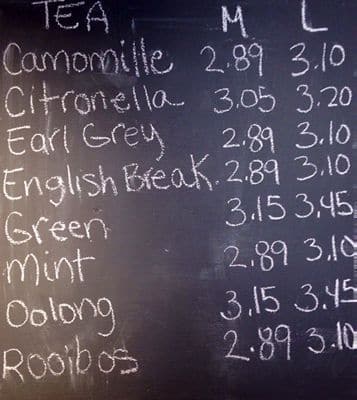 TEA M L
Camomille 2.89 3.10
Citronella 3.05 3.20
Earl Grey 2.89 3.10
English Break. 2.89 3.10
Green 3.15 3.45
Mint 2.89 3.10
Oolong 3.15 3.45
Rooibos 2.89 3.10